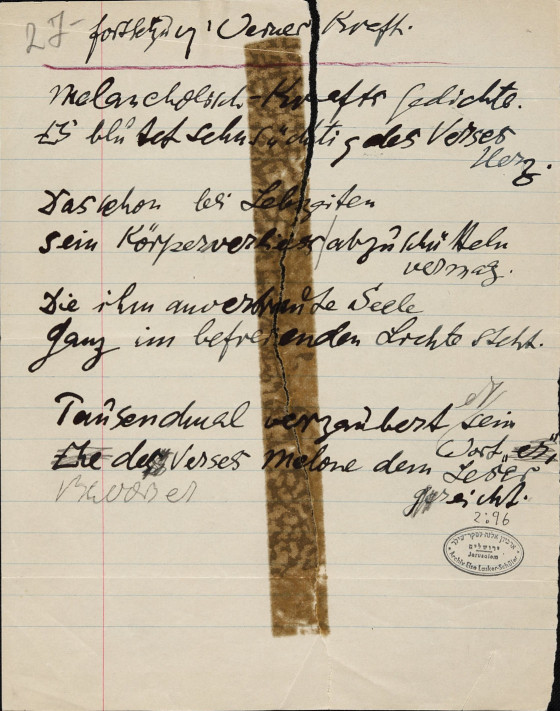 27
fortsetzung: Werner Kraft.
Melancholisch - Krafts Gedichte.
Es blutet sehnsüchtig des Verses
Herz.
Das schon bei Lebzeiten
sein Körperverliess abzuschütteln
vermag.
Die ihm anvertraute Seele
Ganz im befreienden Lichte steht.
Tausendmal verzaubert sein
Wort, er
Ehe des Verses Melone dem Leser
gereicht.
2:96
ארכיון אלזה לסקר-שילר
ירושלים
Jerusalem
Archiv Else Lasker-Schüler